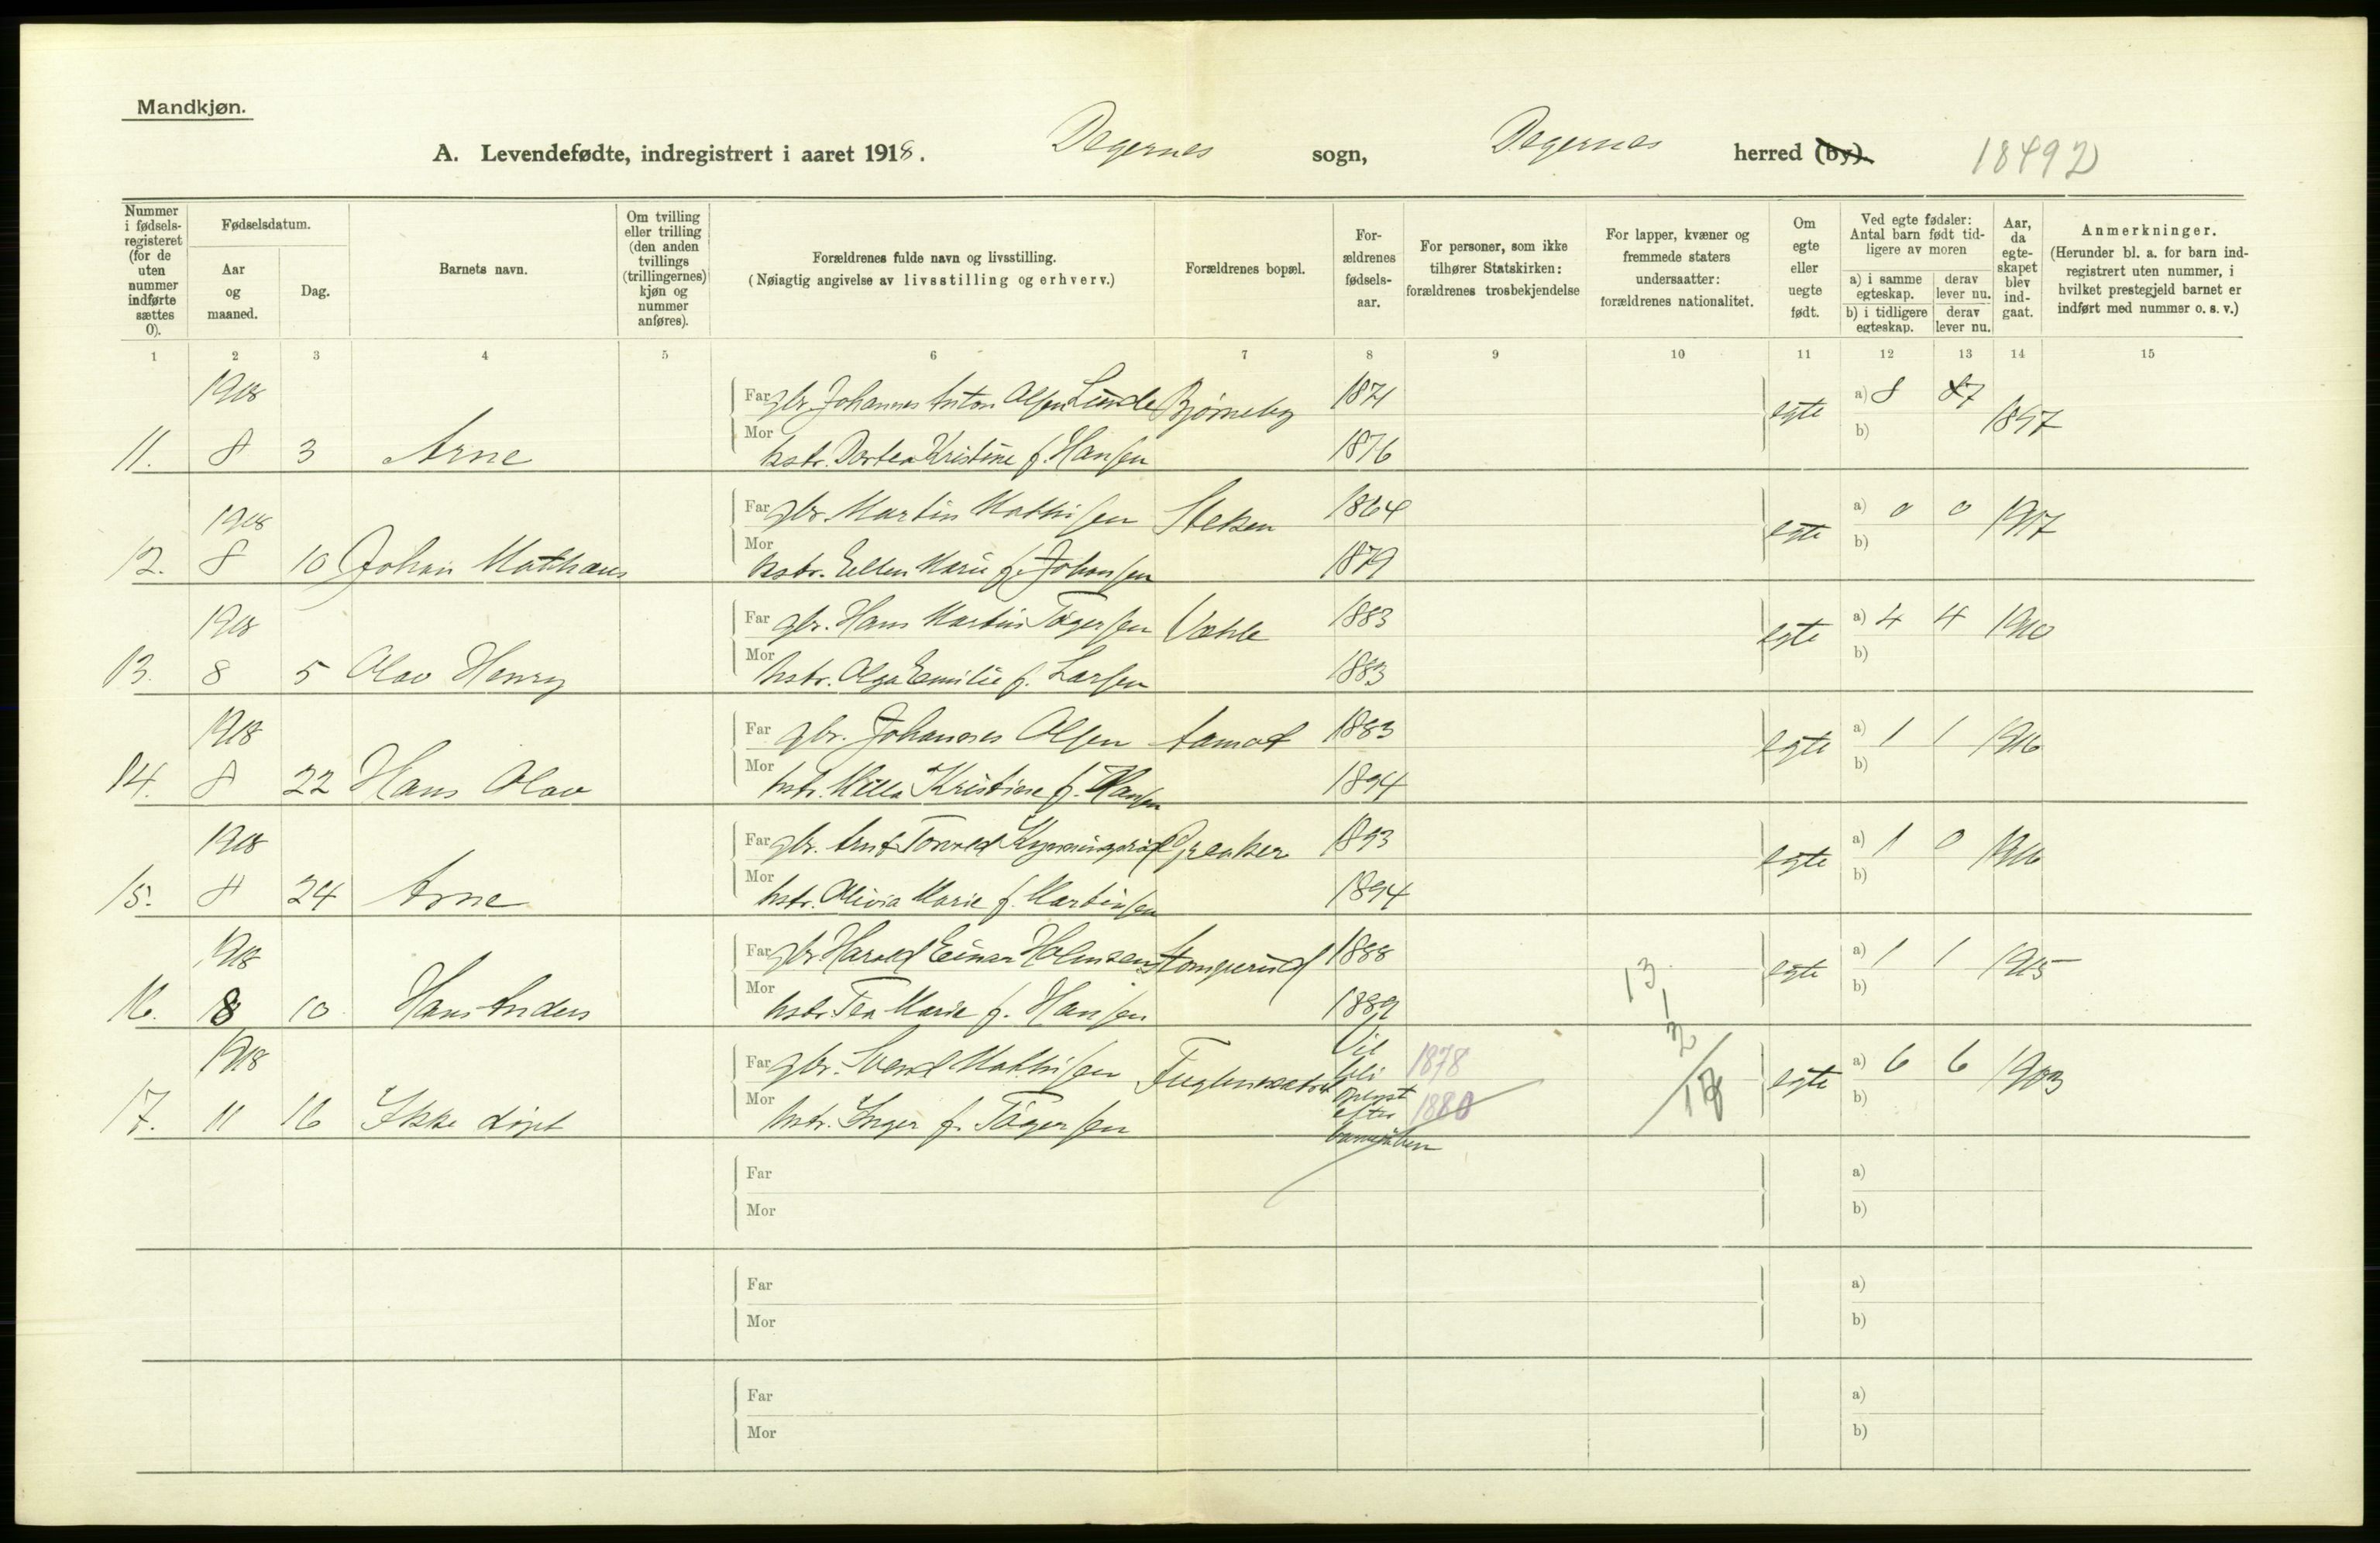 Mandkjøn.
A. Levendefødte, indregistrert i aaret 1918. Degernes sogn, Degernes herred (by). 18492
Nummer i fødsels-registeret (for de uten nummer indførte sættes 0).
Fødselsdatum.
Aar og maaned.
Dag.
Barnets navn.
Om tvilling eller trilling (den anden tvillings (trillingernes) kjøn og nummer anføres).
Forældrenes fulde navn og livsstilling.
(Nøiagtig angivelse av livsstilling og erhverv.)
Forældrenes bopæl.
For-ældrenes fødsels-aar.
For personer, som ikke tilhører Statskirken: forældrenes trosbekjendelse
For lapper, kvæner og fremmede staters undersaatter: forældrenes nationalitet.
Om egte eller uegte født.
Ved egte fødsler: Antal barn født tid-ligere av moren
a) i samme egteskap. derav lever nu.
b) i tidligere egteskap. derav lever nu.
Aar, da egte-skapet blev ind-gaat.
Anmerkninger.
(Herunder bl. a. for barn ind-registrert uten nummer, i hvilket prestegjeld barnet er indført med nummer o. s. v.)
1 2 3 4 5 6 7 8 9 10 11 12 13 14 15
1918 Far gbr. Johannes Anton Olsen Lunde Bjørneby 1871 egte a) 8 7 1897
11. 8 3 Arne Mor hstr. Dortea Kristine f. Hansen 1876 b)
1918 Far gbr. Martin Mathisen Steken 1864 egte a) 0 0 1917
12. 8 10 Johan Mathæus Mor hstr. Ellen Marie f. Johansen 1879 b)
1918 Far gbr. Hans Martin Tøgersen Væhle 1883 egte a) 4 4 1910
13. 8 5 Olav Henry Mor hstr. Olga Emilie f. Larsen 1883 b)
1918 Far gbr. Johannes Olsen Aamot 1883 egte a) 1 1 1916
14. 8 22 Hans Olav Mor hstr. Milla Kristine f. Hansen 1894 b)
1918 Far gbr. Arnt Torvald Greaker 1893 egte a) 1 0 1916
15. 8 24 Arne Mor hstr. Olivia Marie f. Martinsen 1894 b)
1918 Far gbr. Harald Einar Holmsen Stomperud 1888 egte a) 1 1 1915
16. 8 10 Hans Anders Mor hstr. Tea Marie f. Hansen 1889 13 b)
1
1918 Far gbr. Svend Mathisen Vil bli 1878 2 egte a) 6 6 1903
17. 11 16 Ikke døpt Mor hstr. Inger f. Tøgersen oplyst efter 1880 b)
Far a)
Mor b)
Far a)
Mor b)
Far a)
Mor b)